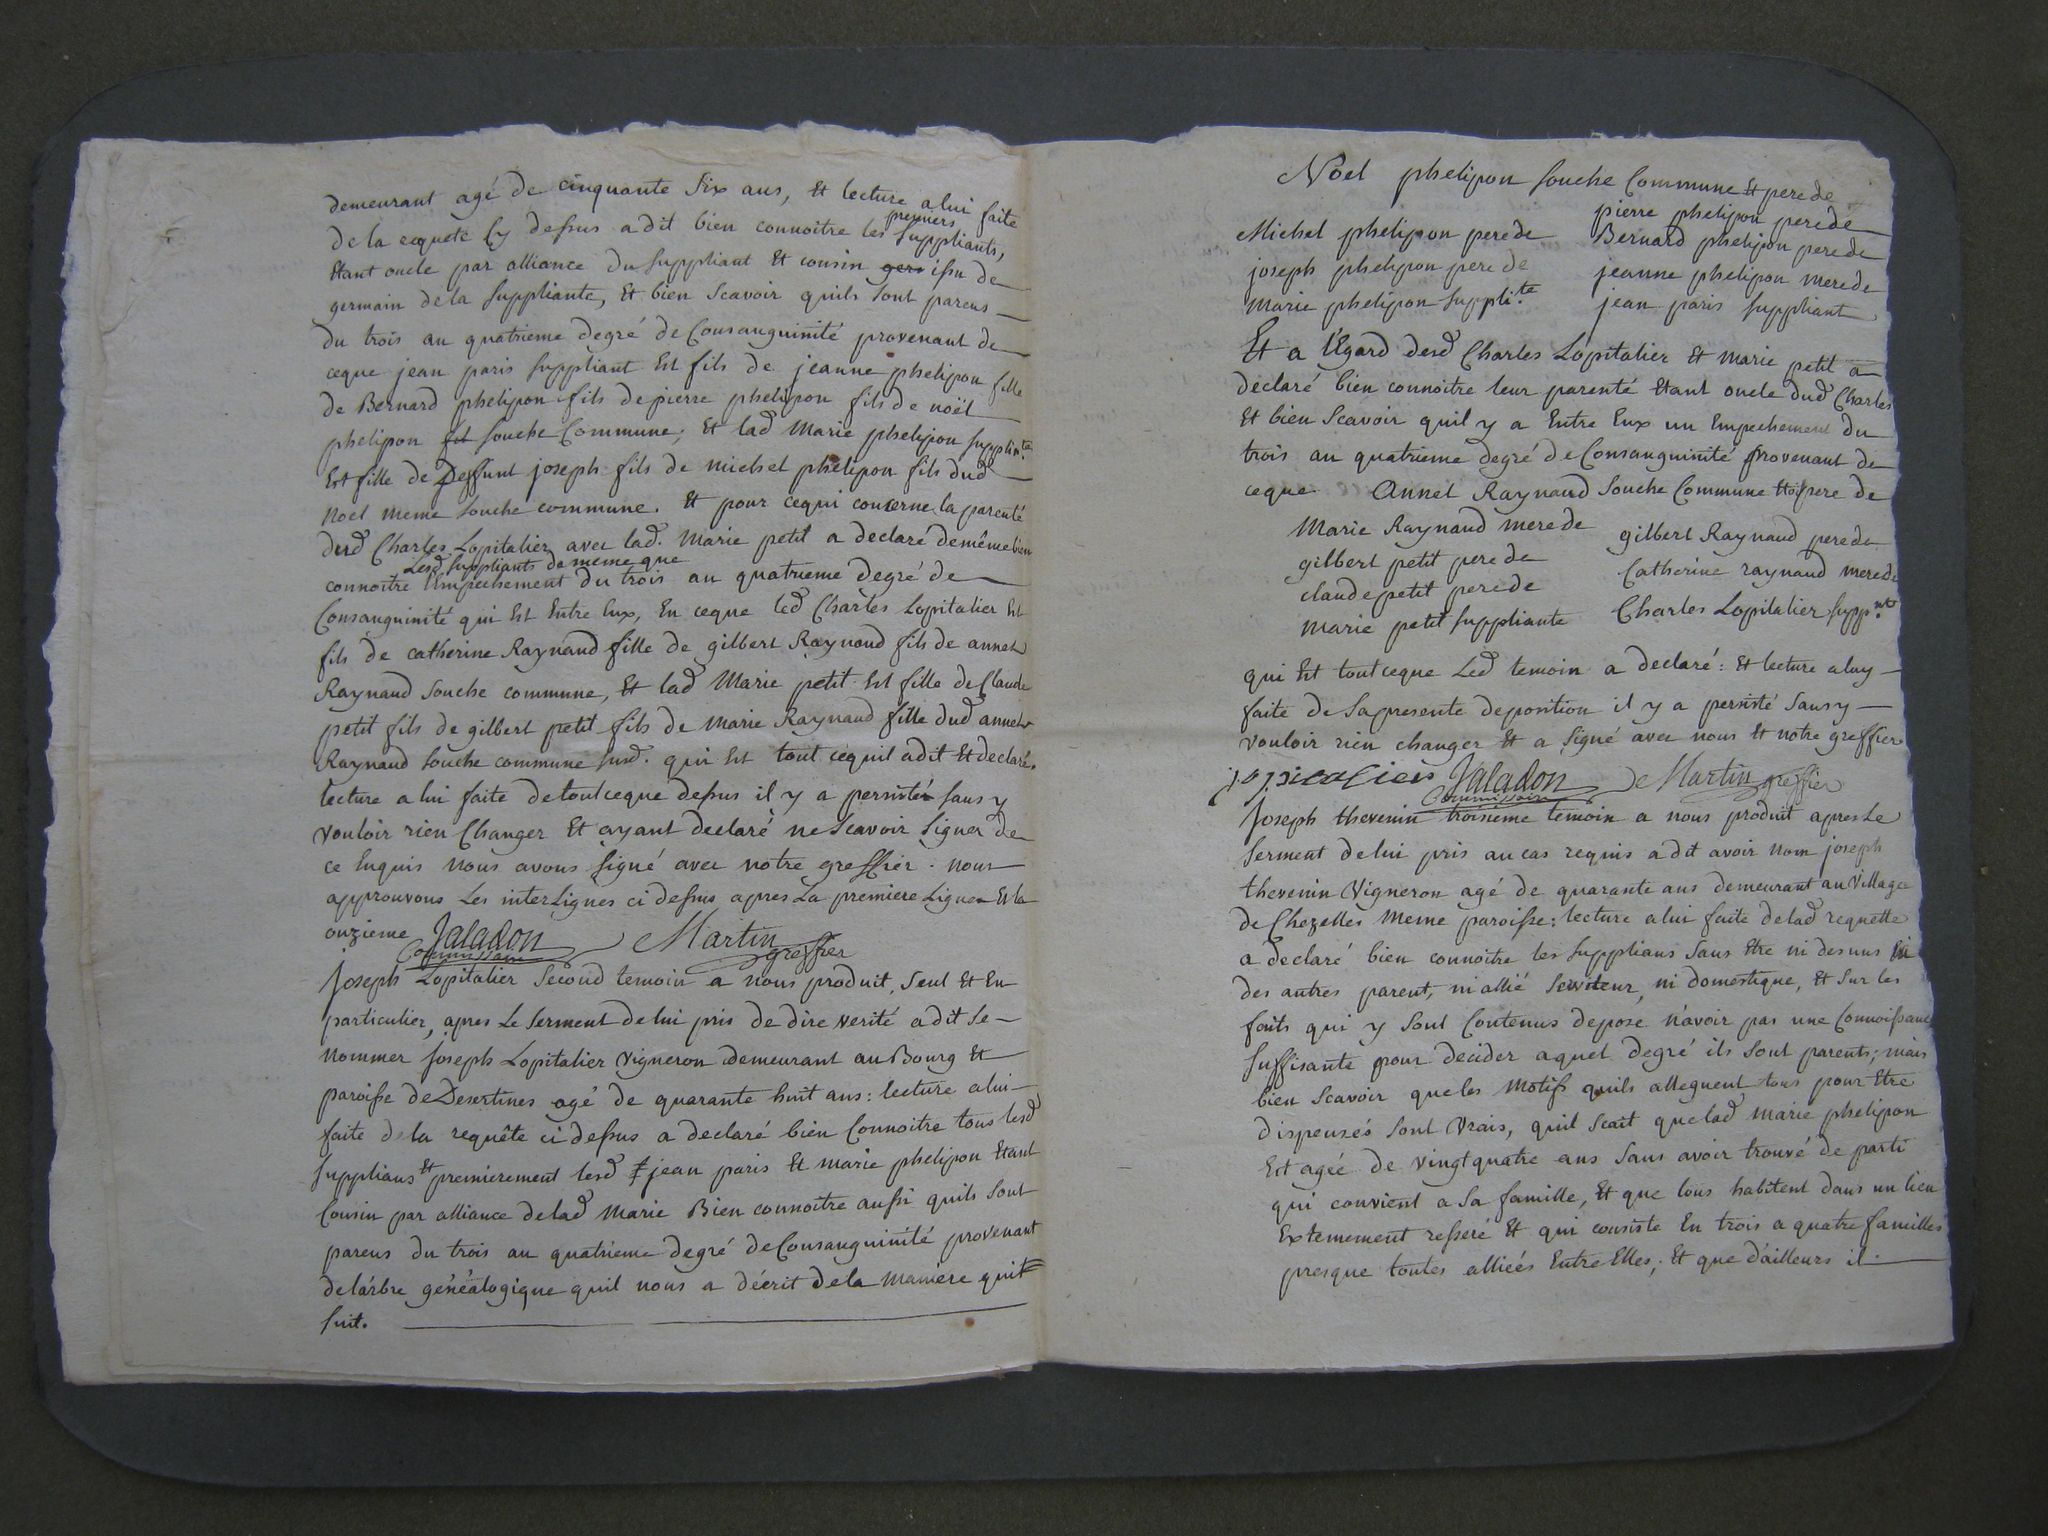 demeurant agé de cinquante six ans, Et lecture a lui faite
de la requete cy dessus a dit bien connoitre les premiers suppliants,
Etant oncle par alliance du suppliant Et cousin ger issu de
germain de la suppliante, Et bien scavoir quils sont parens
du trois au quatrieme degré de Consanguinité provenant de
ceque jean paris suppliant Est fils de jeanne phelipon fille
de Bernard phelipon fils de pierre phelipon fils de noël
phelipon fil souche Commune; Et lad Marie phelipon supplin.te
Est fille de Deffunt joseph fils de michel phelipon fils dud
Noel meme souche commune. Et pour cequi concerne la parenté
dud Charles Lopitalier avec lad. Marie petit a declaré de même bien
Lesd suppliants de meme que
connoitre l'Empechement du trois au quatrieme degré de
Consanguinité qui Est Entre Eux, En ceque led Charles Lopitalier Est
fils de catherine Raynaud fille de gilbert Raynaud fils de annet
Raynaud souche commune, Et lad Marie petit Est fille de Claude
petit fils de gilbert petit fils de Marie Raynaud fille dud annet
Raynaud souche commune susd. qui Est tout cequil a dit Et declaré.
lecture a lui faite de tout ceque dessus il y a persisté sans y
vouloir rien Changer Et ayant declaré ne scavoir signer de
ce Enquis nous avons signé avec notre greffier. nous
approuvons Les interLignes ci dessus apres La premiere Ligne Et la
onzieme Jaladon Martin
Commissaire greffier
Joseph Lopitalier second temoin a nous produit, seul Et En
particulier, apres Le serment de lui pris de dire verité a dit se
nommer joseph Lopitalier vigneron demeurant au Bourg Et
paroisse de Desertines agé de quarante huit ans: lecture a lui
faite de la requête ci dessus a declaré bien Connoitre tous lesd
supplians Et premierement lesd jean paris Et marie phelipon Etant
Cousin par alliance de lad Marie Bien connoitre aussi quils sont
parens du trois au quatrieme degré de Consanguinité provenant
de l'árbre généalogique quil nous a décrit de la maniere quit
suit.
Noel phelipon souche Commune Et pere de
Michel phelipon pere de pierre phelipon pere de
joseph phelipon pere de Bernard phelipon pere de
Marie phelipon suppli.te jeanne phelipon mere de
jean paris suppliant
Et a l'Egard desd Charles Lopitalier Et marie petit a
declaré bien connoitre leur parenté Etant oncle dud Charles
Et bien scavoir quil y a Entre Eux un Empechement du
trois au quatrieme degré de Consanguinité provenant de
ceque Annet Raynaud souche Commune Et pere de
Marie Raynaud mere de gilbert Raynaud pere de
gilbert petit pere de Catherine raynaud mere de
claude petit pere de Charles Lopitalier supp.nt
marie petit suppliante
qui Est tout ceque Led temoin a declaré: Et lecture a luy
faite de sa presente deposition il y a persisté sans y
vouloir rien changer Et a signé avec nous Et notre greffier
Jaladon De Martin greffier
Commissaire
Joseph thevenin troisieme temoin a nous produit apres Le
serment de lui pris au cas requis a dit avoir nom joseph
thevenin Vigneron agé de quarante ans demeurant au Village
de Chezelles meme paroisse: lecture a lui faite de lad requette
a declaré bien connoitre les supplians sans Etre ni des uns ni
des autres parent, ni allié serviteur, ni domestique, Et sur les
faits qui y sont Contenus depose n'avoir pas une Connoissance
suffisante pour decider a quel degré ils sont parents; mais
bien scavoir que les Motifs quils alleguent tous pour Etre
dispensés sont Vrais, quil scait que lad marie phelipon
Est agée de vingt quatre ans sans avoir trouvé de parti
qui convient a sa famille, Et que tous habitent dans un lieu
Extemement resseré Et qui consiste En trois a quatre familles
presque toutes alliées Entre Elles; Et que d'ailleurs il